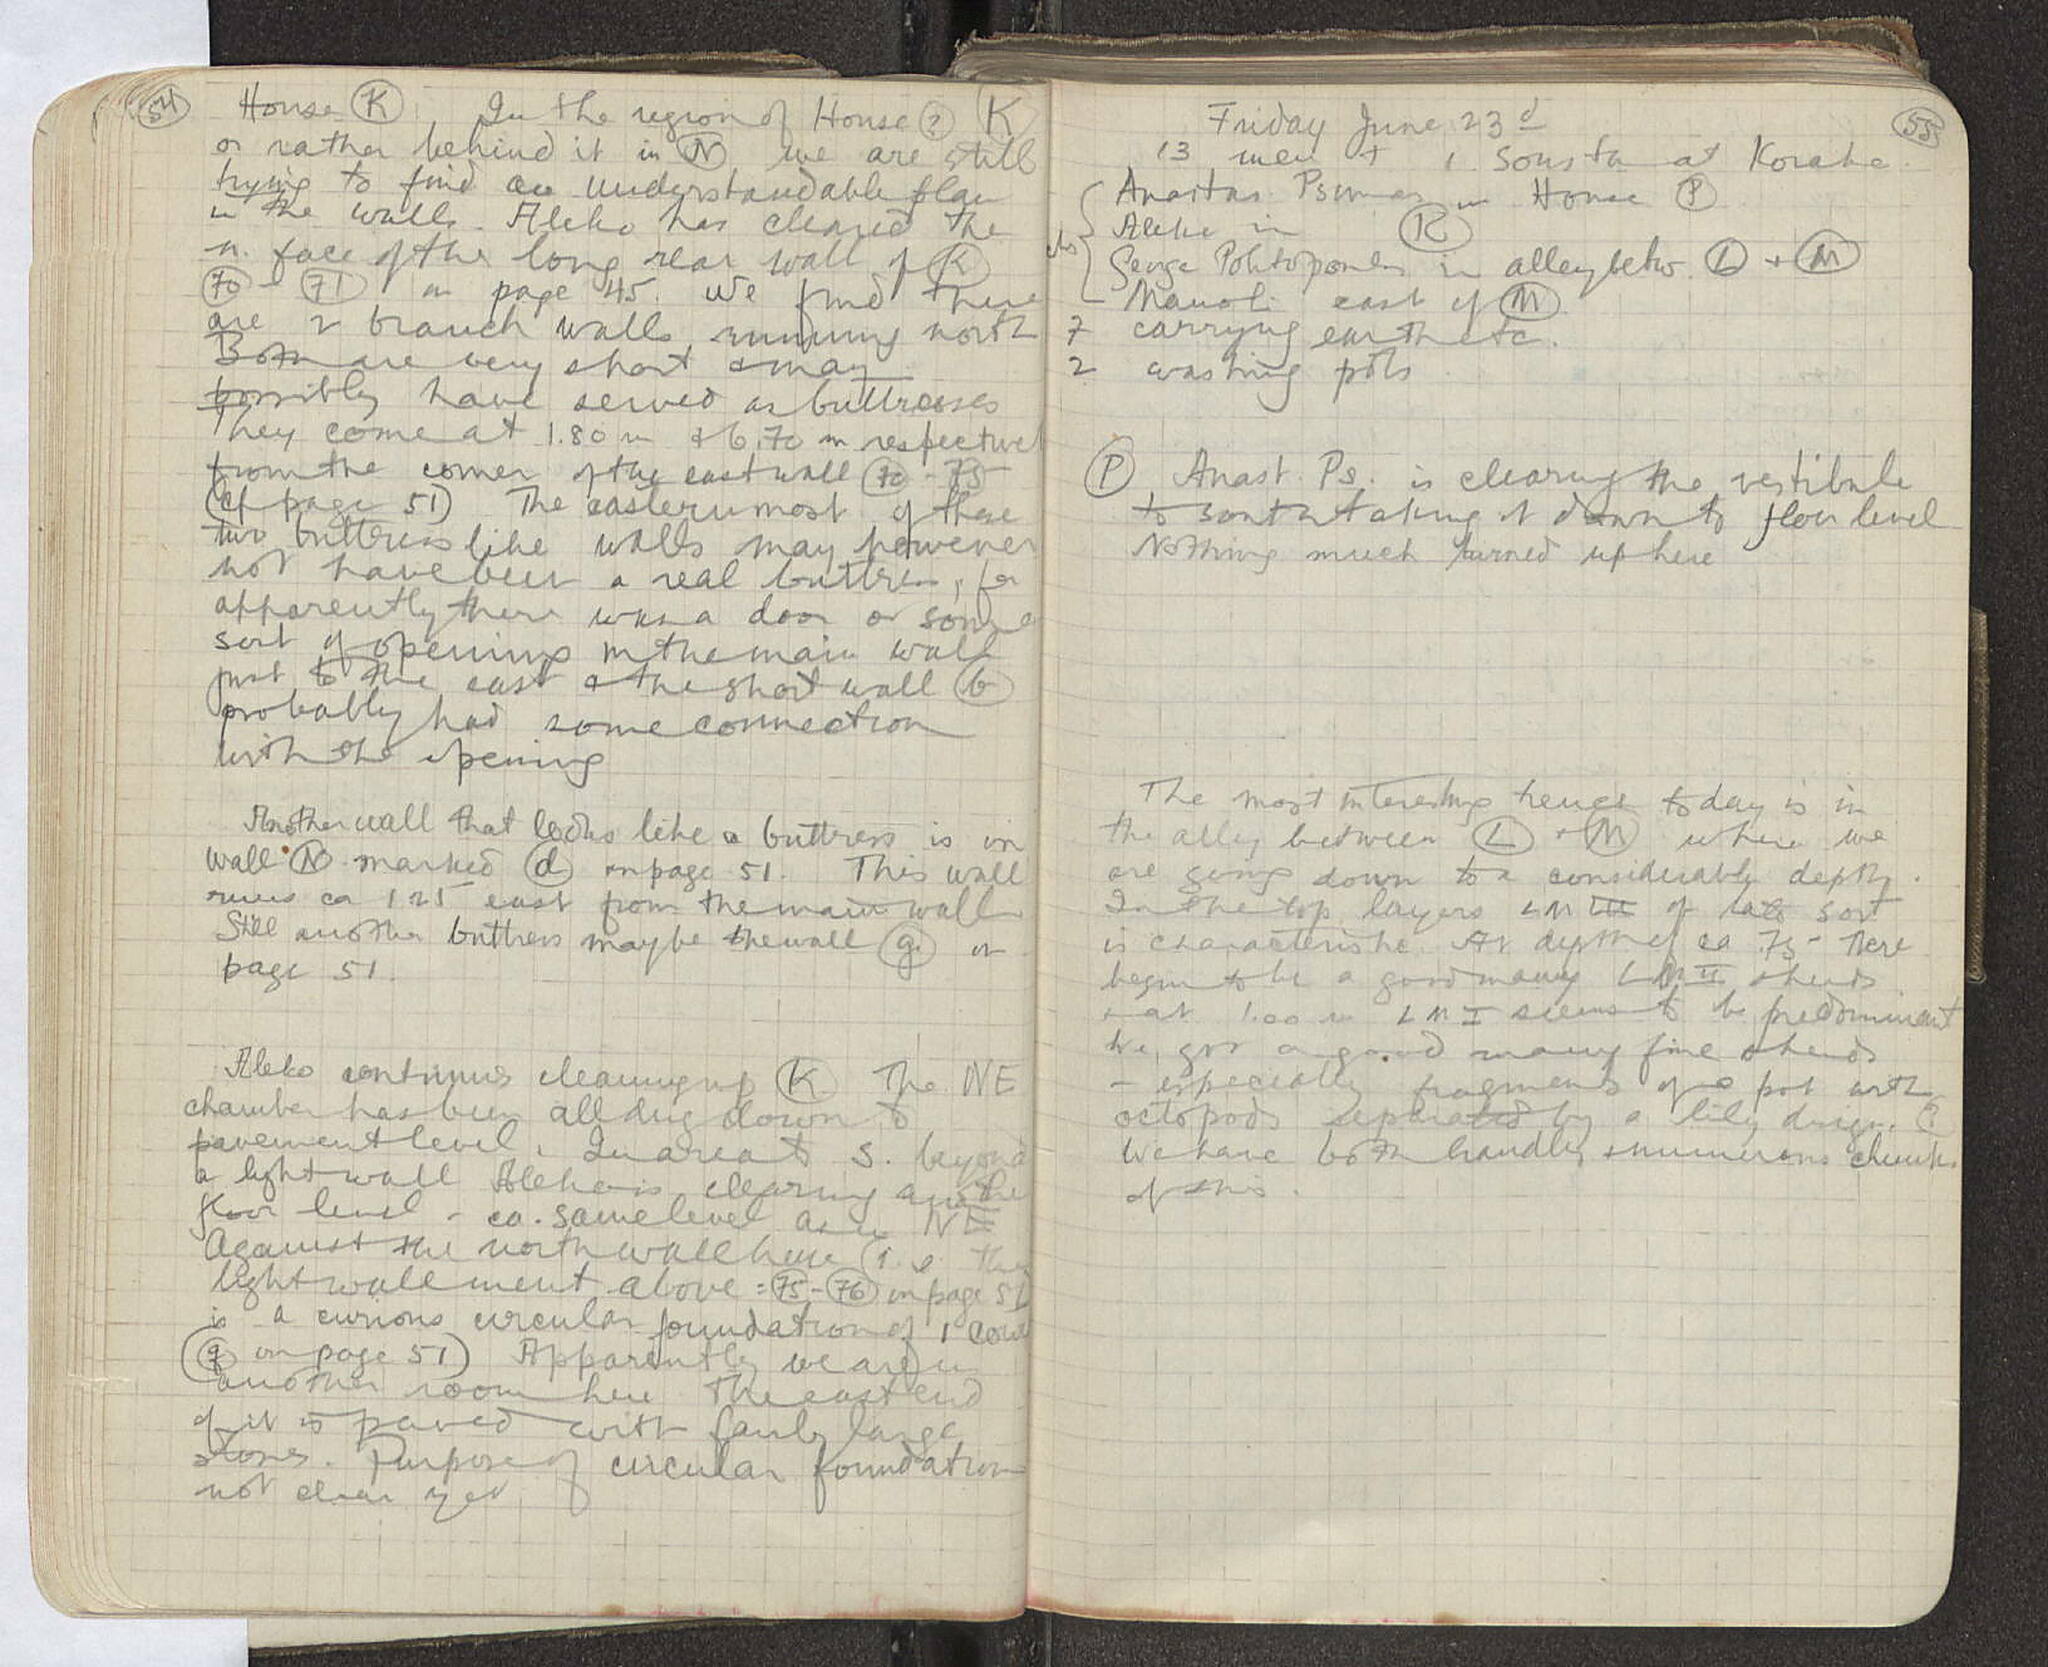 54
House K In the region of House ? K
or rather behind it in N we are still
trying to find an understandable plan
in the walls. Aleko has cleared the
n. face of the long rear wall of K
70 - 71 on page 45. We find there
are 2 branch walls running north
Both are very short & may
possibly have served as buttresses
They come at 1.80 m & 6.70 m respectivel
from the corner of the east wall 70 - 75
(cf page 51) The easternmost of these
two buttress like walls may however
not have been a real buttress, for
apparently there was a door or some
sort of opening in the main wall
just to the east & the short wall b
probably had some connection
with the opening
Another wall that looks like a buttress is in
wall N marked d on page 51. This wall
runs ca 1.25 east from the main wall
Still another buttress may be the wall g on
page 51.
Aleko continues cleaning up K The NE
chamber has been all dug down to
pavement level. In area to S. beyond
a light wall Aleko is clearing another
floor level - ca. same level as in NE
Against the north wall here (i.e. the
light wall ment. above = 75 - 76 on page 51
is a curious circular foundation of 1 course
(q on page 51) Apparently we are in
another room here The east end
of it is paved with fairly large
stones. Purpose of circular foundation
not clear yet
55
Friday June 23d
13 men + 1 sousta at Korake
Anastas Psomas in House P
Aleko in K
George Politopoulos in alley betw. L + M
Manoli east of M
7 carrying earth etc.
2 washing pots
P Anast. Ps. is clearing the vestibule
to south taking it down to floor level
Nothing much turned up here
The most interesting trench today is in
the alley between L + M where we
are going down to a considerable depth.
In the top layers LM III of late sort
is characteristic. At depth of ca .75 - there
begin to be a good many LM II sherds
+ at 1.00 m LM I seems to be predominant
We got a good many fine sherds
- especially fragments of a pot with
octopods separated by a lily design. ?
We have both handles + numerous chunks
of this.